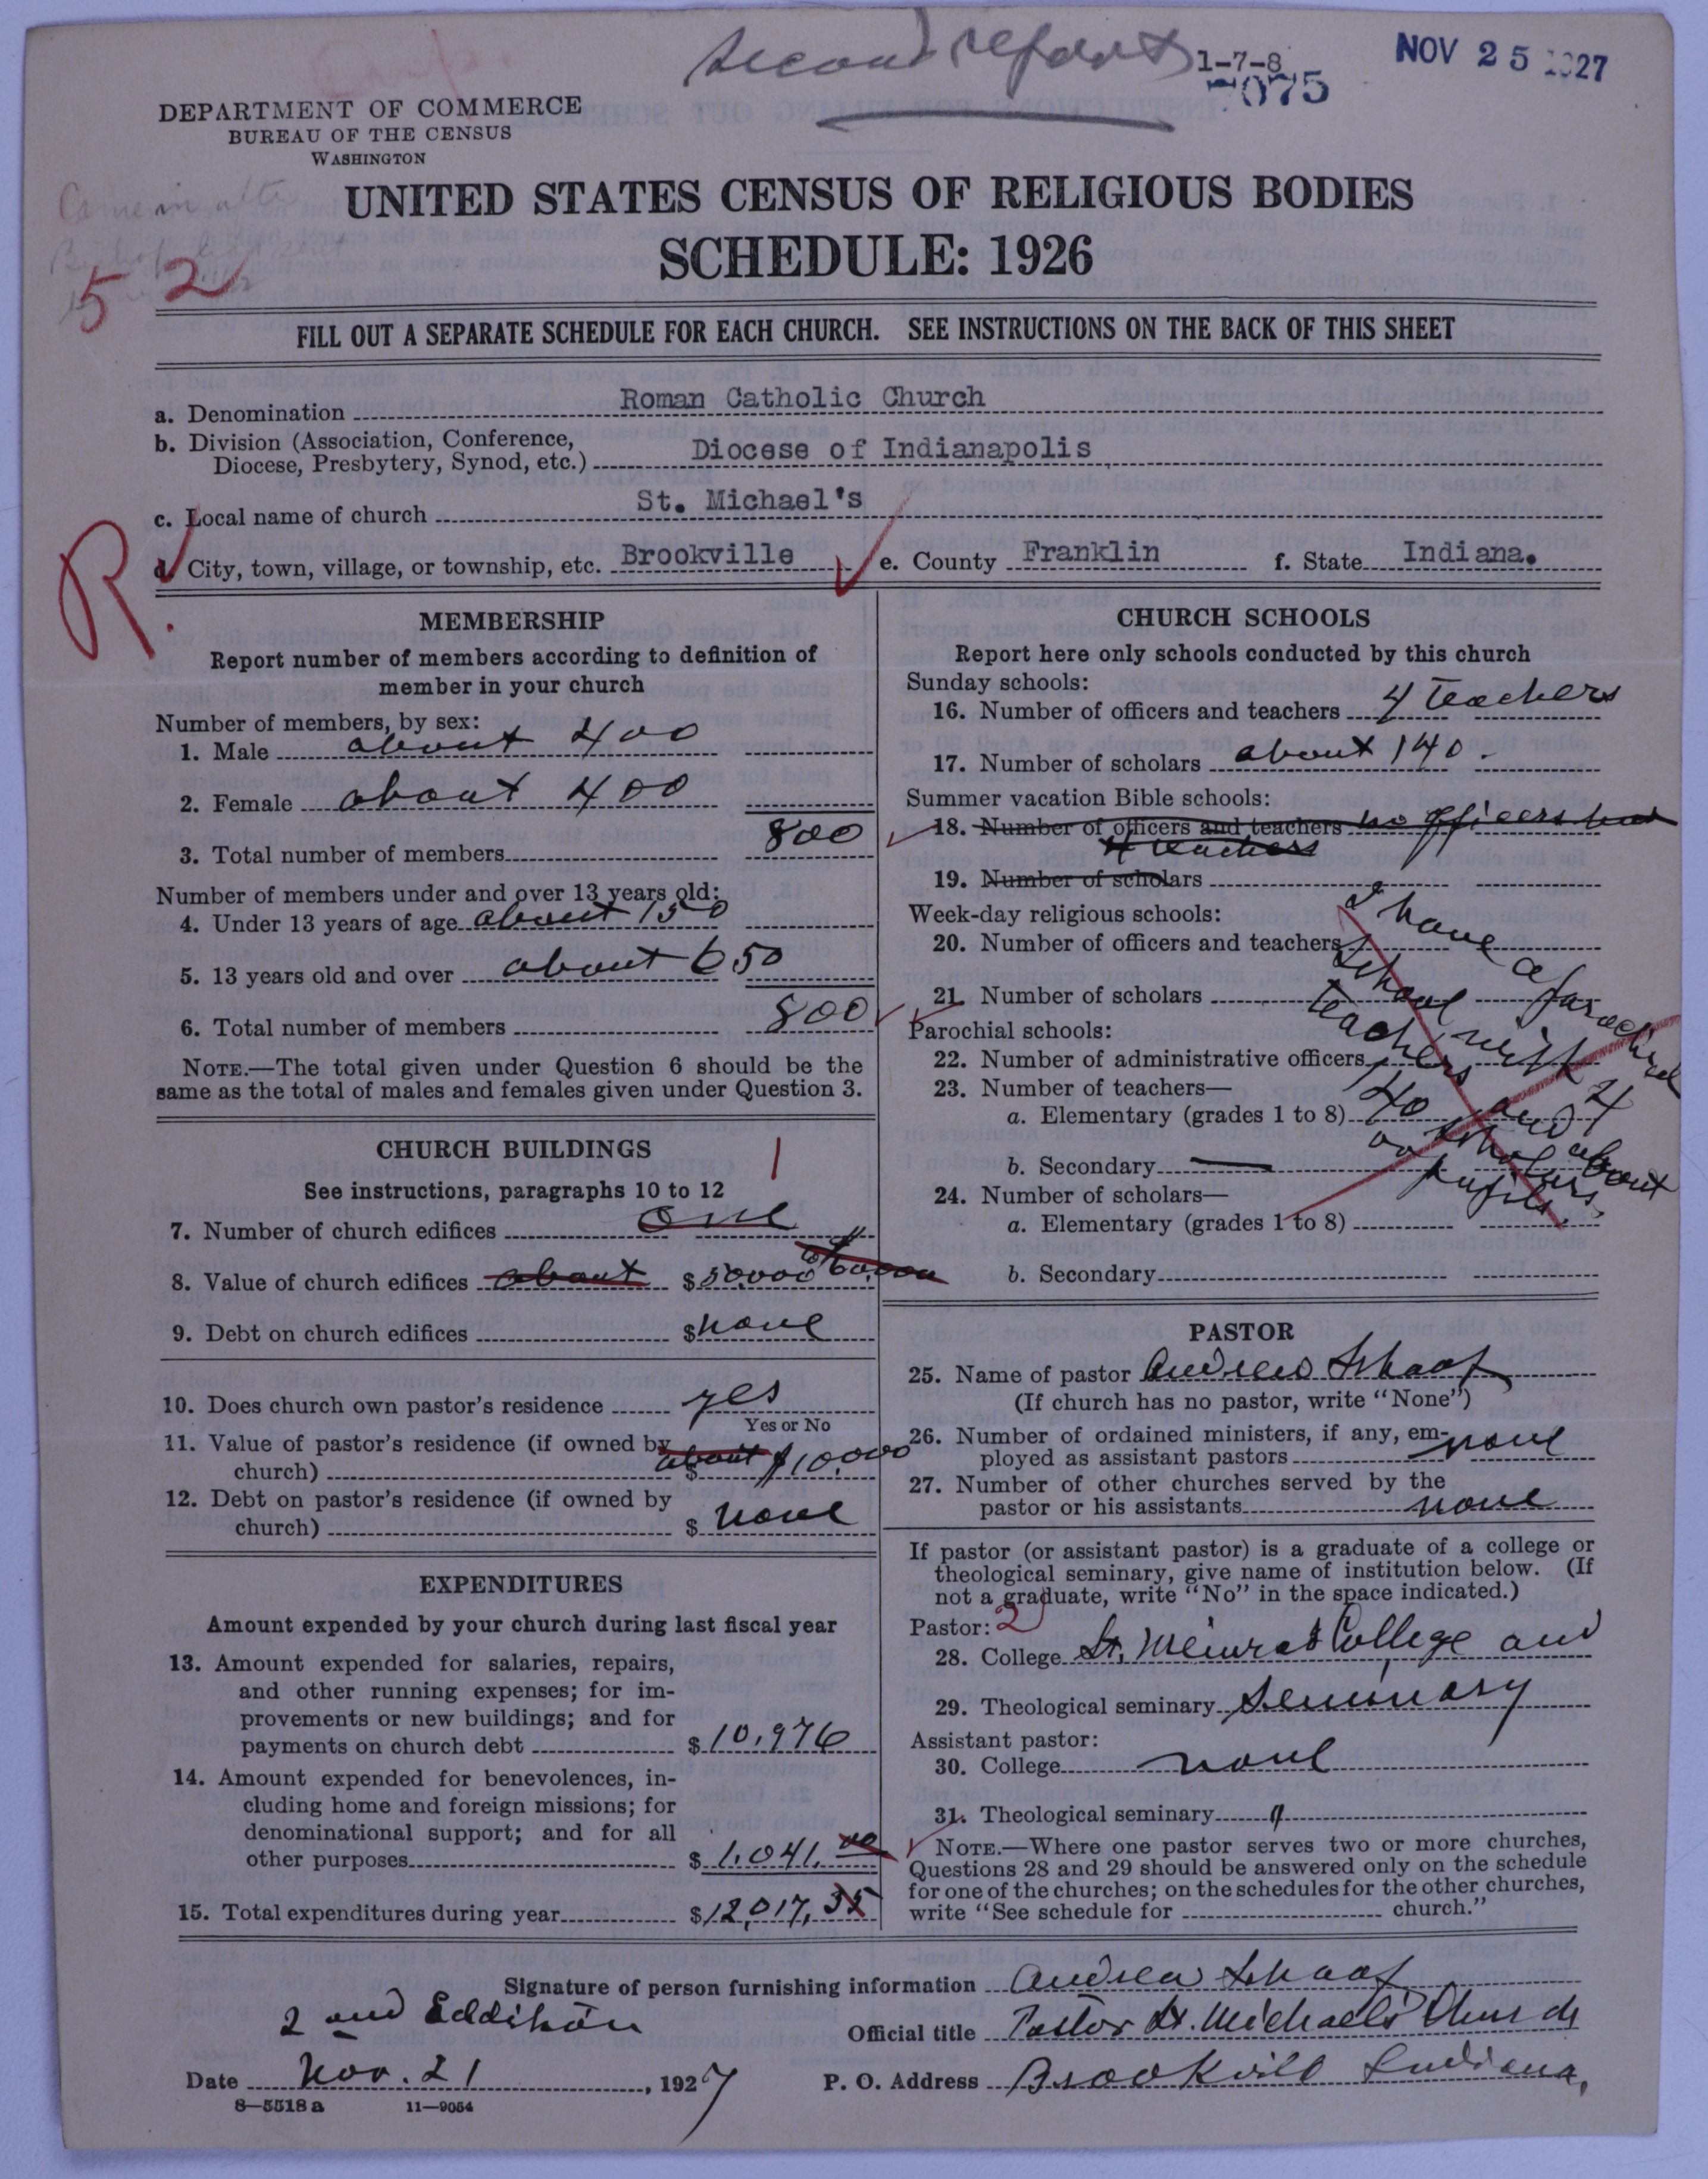 Second report
1-7-8
7075
NOV 25 1927
DEPARTMENT OF COMMERCE
BUREAU OF THE CENSUS
WASHINGTON
Came in after
52
UNITED STATES CENSUS OF RELIGIOUS BODIES
SCHEDULE: 1926
FILL OUT A SEPARATE SCHEDULE FOR EACH CHURCH. SEE INSTRUCTIONS ON THE BACK OF THIS SHEET
a. Denomination Roman Catholic Church
b. Division (Association, Conference,
Diocese, Presbytery, Synod, etc.) Diocese of Indianapolis
c. Local name of church St. Michael's
R.
d. City, town, village, or township, etc. Brookville e. County Franklin f. State Indiana.
MEMBERSHIP
Report number of members according to definition of
member in your church
Number of members, by sex:
1. Male about 400
2. Female about 400
3. Total number of members 800
Number of members under and over 13 years old:
4. Under 13 years of age about 150
5. 13 years old and over about 650
6. Total number of members 800
NOTE.—The total given under Question 6 should be the
same as the total of males and females given under Question 3.
CHURCH BUILDINGS
1
See instructions, paragraphs 10 to 12
7. Number of church edifices one
8. Value of church edifices about $50,000 or 60,000
9. Debt on church edifices $ none
10. Does church own pastor's residence yes
Yes or No
11. Value of pastor's residence (if owned by
church) about $ $10,000
12. Debt on pastor's residence (if owned by
church) $ none
EXPENDITURES
Amount expended by your church during last fiscal year
13. Amount expended for salaries, repairs,
and other running expenses; for im-
provements or new buildings; and for
payments on church debt $ 10,976
14. Amount expended for benevolences, in-
cluding home and foreign missions; for
denominational support; and for all
other purposes $ 1,041.00
15. Total expenditures during year $ 12,017.35
CHURCH SCHOOLS
Report here only schools conducted by this church
Sunday schools:
16. Number of officers and teachers 4 teachers
17. Number of scholars about 140.
Summer vacation Bible schools:
18. Number of officers and teachers no officers but
4 teachers
19. Number of scholars
Week-day religious schools:
20. Number of officers and teachers
21. Number of scholars
Parochial schools:
22. Number of administrative officers
23. Number of teachers—
a. Elementary (grades 1 to 8)
b. Secondary —
24. Number of scholars—
a. Elementary (grades 1 to 8)
b. Secondary
I have a parochial
school with 4
teachers and about
140 scholars
or pupils.
PASTOR
25. Name of pastor Andrew Schaaf
(If church has no pastor, write "None")
26. Number of ordained ministers, if any, em-
ployed as assistant pastors none
27. Number of other churches served by the
pastor or his assistants none
If pastor (or assistant pastor) is a graduate of a college or
theological seminary, give name of institution below. (If
not a graduate, write "No" in the space indicated.)
Pastor: 2
28. College St. Meinrad College and
29. Theological seminary Seminary
Assistant pastor:
30. College none
31. Theological seminary "
NOTE.—Where one pastor serves two or more churches,
Questions 28 and 29 should be answered only on the schedule
for one of the churches; on the schedules for the other churches,
write "See schedule for church."
Signature of person furnishing information Andrew Schaaf
2nd Eddition
Official title Pastor St. Michael's Church
Date Nov. 21, 1927
P. O. Address Brookville Indiana,
8—5518a 11—9054